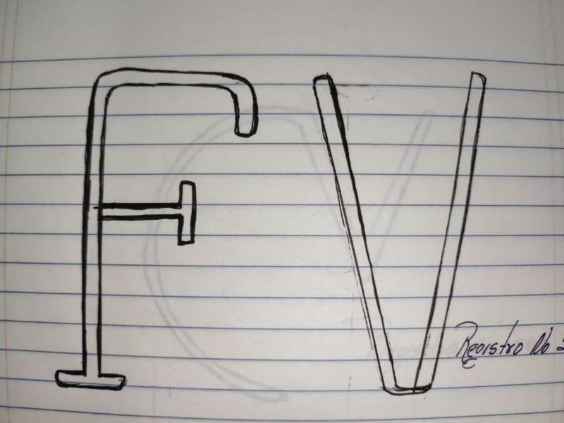 FV
Registro No